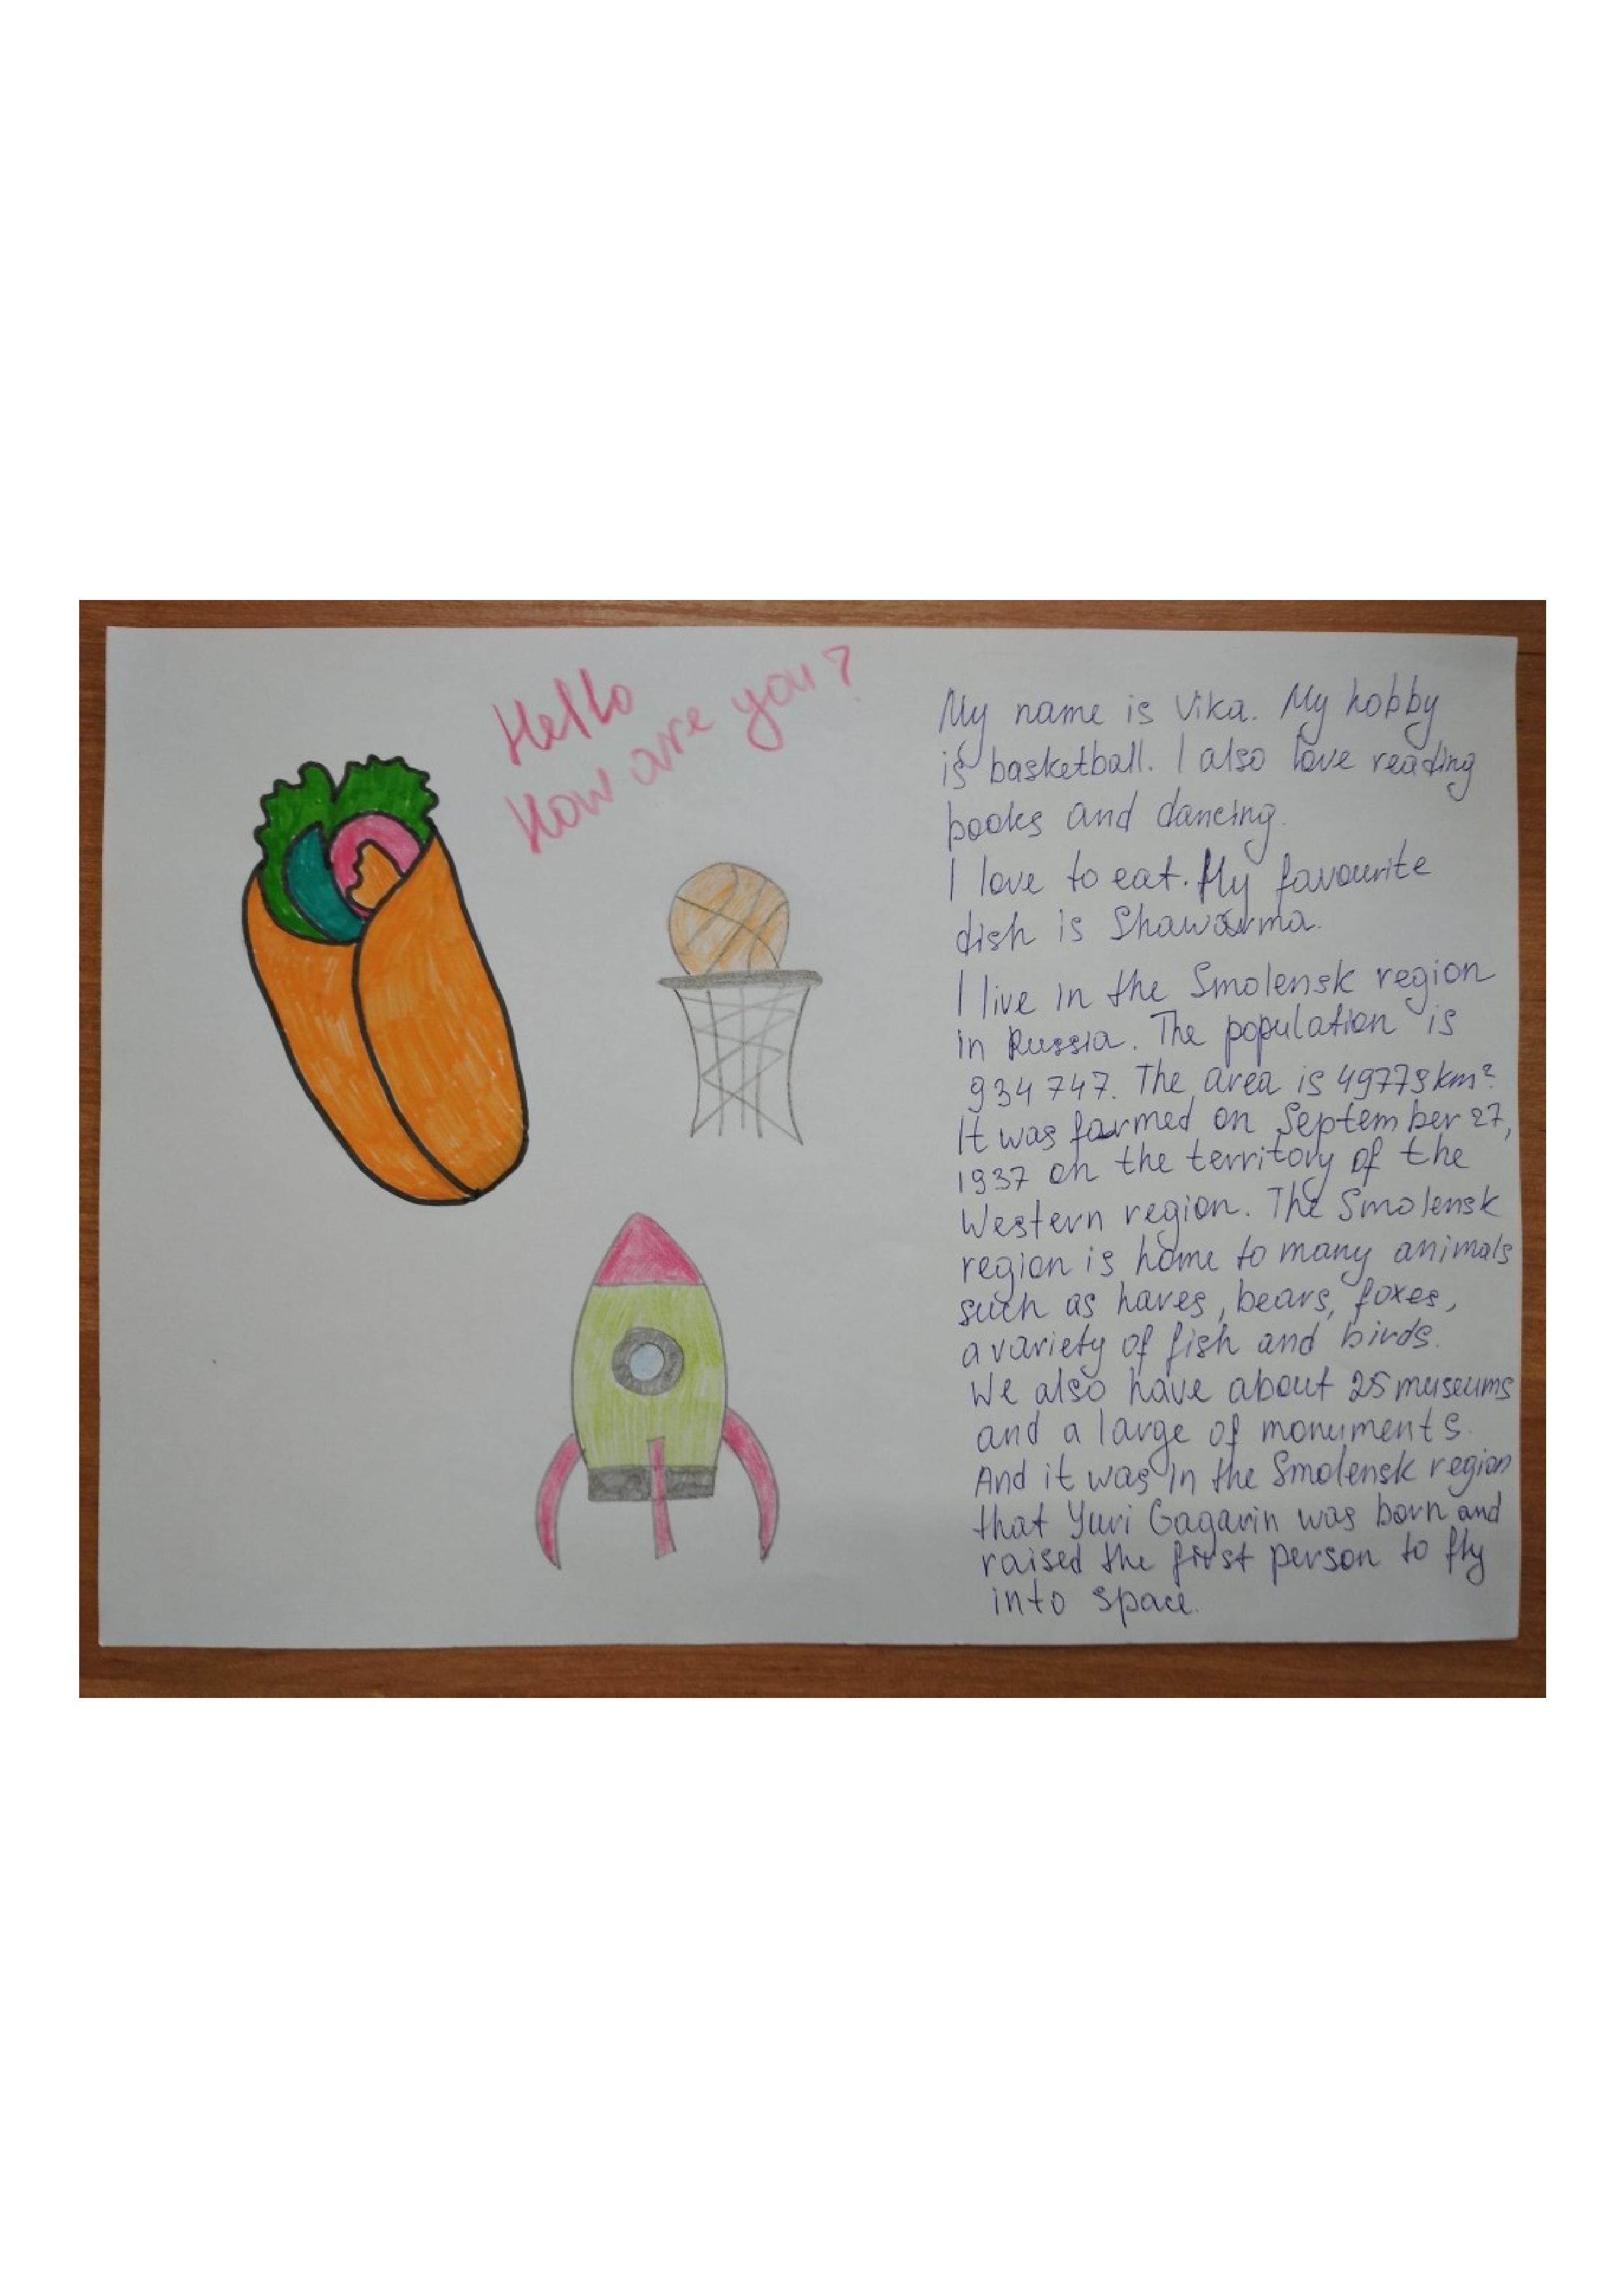 Hello
How are you?
My name is Vika. My hobby
is basketball. I also love reading
books and dancing.
I love to eat. My favourite
dish is Shawarma.
I live in the Smolensk region
in Russia. The population is
934 747. The area is 49779 km²
It was formed on September 27,
1937 on the territory of the
Western region. The Smolensk
region is home to many animals
such as hares, bears, foxes,
a variety of fish and birds.
We also have about 25 museums
and a large of monuments.
And it was in the Smolensk region
that Yuri Gagarin was born and
raised the first person to fly
into space.